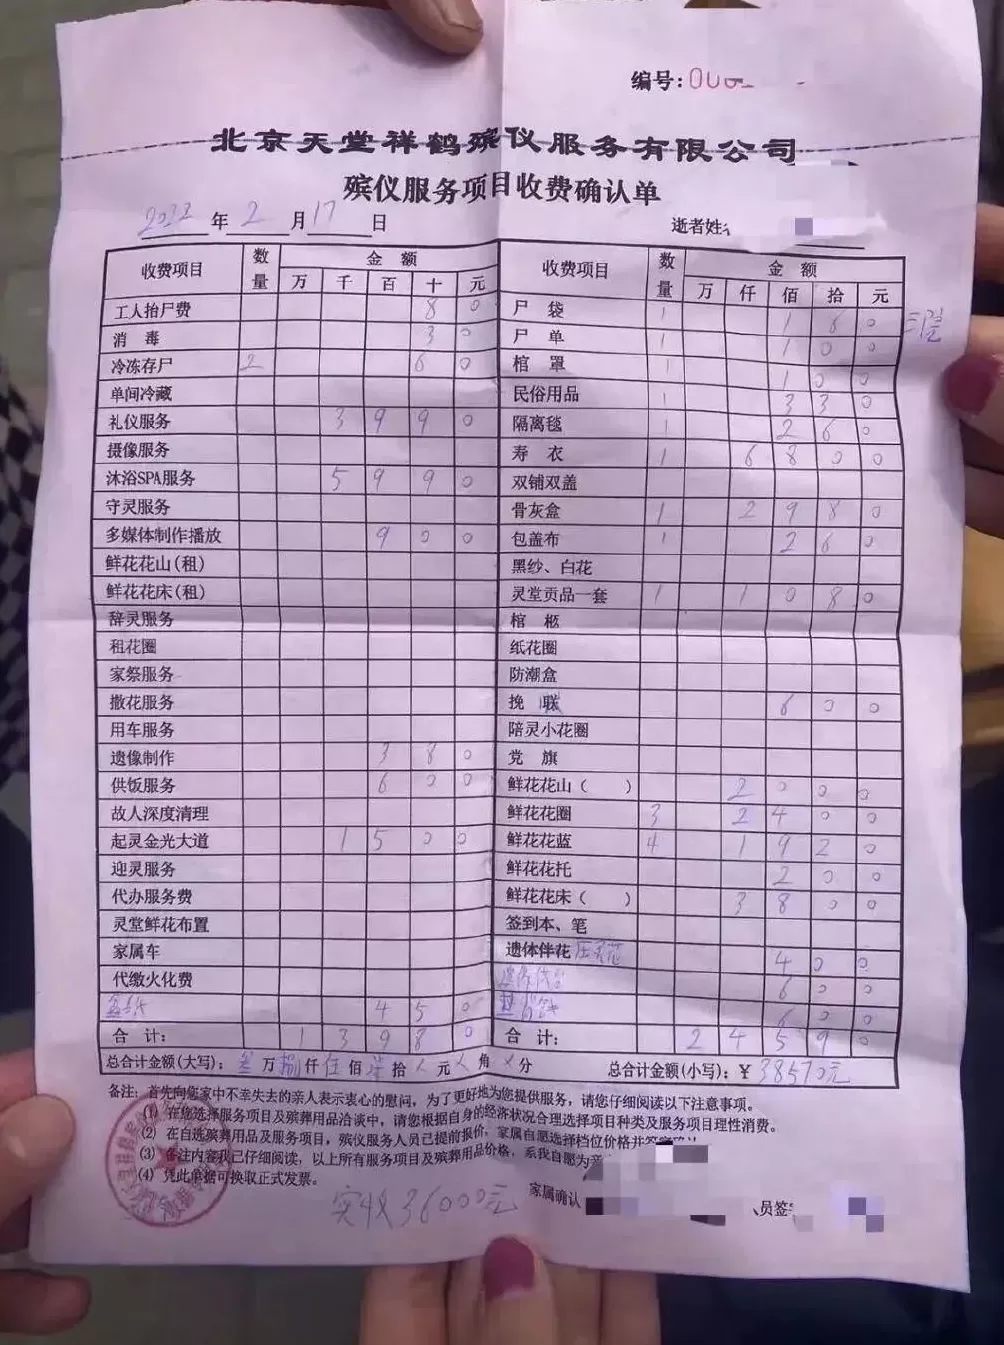 编号:
北京天堂祥鹤殡仪服务有限公司
殡仪服务项目收费确认单
2022 年 2 月 17 日
逝者姓
收费项目 数量 金 额 万 千 百 十 元 收费项目 数量 金 额 万 仟 佰 拾 元
工人抬尸费 8 0 尸 袋 1 1 8 0
消 毒 3 0 尸 单 1 1 0 0
冷冻存尸 2 6 0 棺 罩 1 1 0 0
单间冷藏 民俗用品 1 3 3 0
礼仪服务 3 9 9 0 隔离毯 1 2 6 0
摄像服务 寿 衣 1 6 8 0 0
沐浴SPA服务 5 9 9 0 双铺双盖
守灵服务 骨灰盒 1 2 9 8 0
多媒体制作播放 9 0 0 包盖布 1 2 6 0
鲜花花山(租) 黑纱、白花
鲜花花床(租) 灵堂贡品一套 1 1 0 8 0
辞灵服务 棺 柩
租花圈 纸花圈
家祭服务 防潮盒
撒花服务 挽 联 6 0 0
用车服务 陪灵小花圈
遗像制作 3 8 0 党 旗
供饭服务 6 0 0 鲜花花山（ ） 2 0 0 0
故人深度清理 鲜花花圈 3 2 4 0 0
起灵金光大道 1 5 0 0 鲜花花蓝 4 1 9 2 0
迎灵服务 鲜花花托 2 0 0
代办服务费 鲜花花床（ ） 3 8 0 0
灵堂鲜花布置 签到本、笔
家属车 遗体伴花 4 0 0
代缴火化费 6 0 0
4 5 0 6 0 0
合 计: 1 3 9 8 0 合 计: 2 4 5 9 0
总合计金额(大写): 叁 万 捌 仟 伍 佰 柒 拾 元 角 分 总合计金额(小写): ￥ 38570元
备注: 首先向您家中不幸失去的亲人表示衷心的慰问，为了更好地为您提供服务，请您仔细阅读以下注意事项。
(1) 在您选择服务项目及殡葬用品洽谈中，请您根据自身的经济状况合理选择项目种类及服务项目理性消费。
(2) 在自选殡葬用品及服务项目，殡仪服务人员已提前报价，家属自愿选择档位价格并签
(3) 备注内容我已仔细阅读，以上所有服务项目及殡葬用品价格，系我自愿为
(4) 凭此单据可换取正式发票。
实收36000元
家属确认 员签